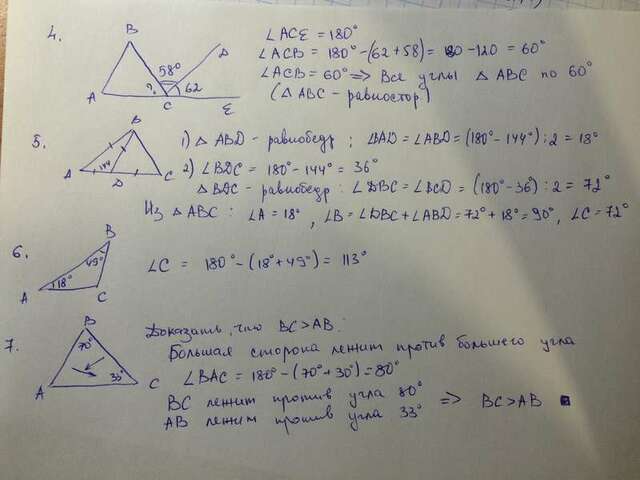 4.
B
58°
D
?
62
A
C
E
∠ACE = 180°
∠ACB = 180° - (62 + 58) = 180 - 120 = 60°
∠ACB = 60° => Все углы △ABC по 60°
(△ABC - равностор)
5.
B
144
A
D
C
1) △ABD - равнобедр ; ∠BAD = ∠ABD = (180° - 144°) : 2 = 18°
2) ∠BDC = 180° - 144° = 36°
△BDC - равнобедр : ∠DBC = ∠BCD = (180° - 36°) : 2 = 72°
Из △ABC : ∠A = 18° , ∠B = ∠DBC + ∠ABD = 72° + 18° = 90° , ∠C = 72°
6.
B
49°
18°
A
C
∠C = 180° - (18° + 49°) = 113°
7.
B
70°
33°
A
C
Доказать, что BC > AB.
Большая сторона лежит против большего угла
∠BAC = 180° - (70° + 30°) = 80°
BC лежит против угла 80°
AB лежит против угла 33° => BC > AB